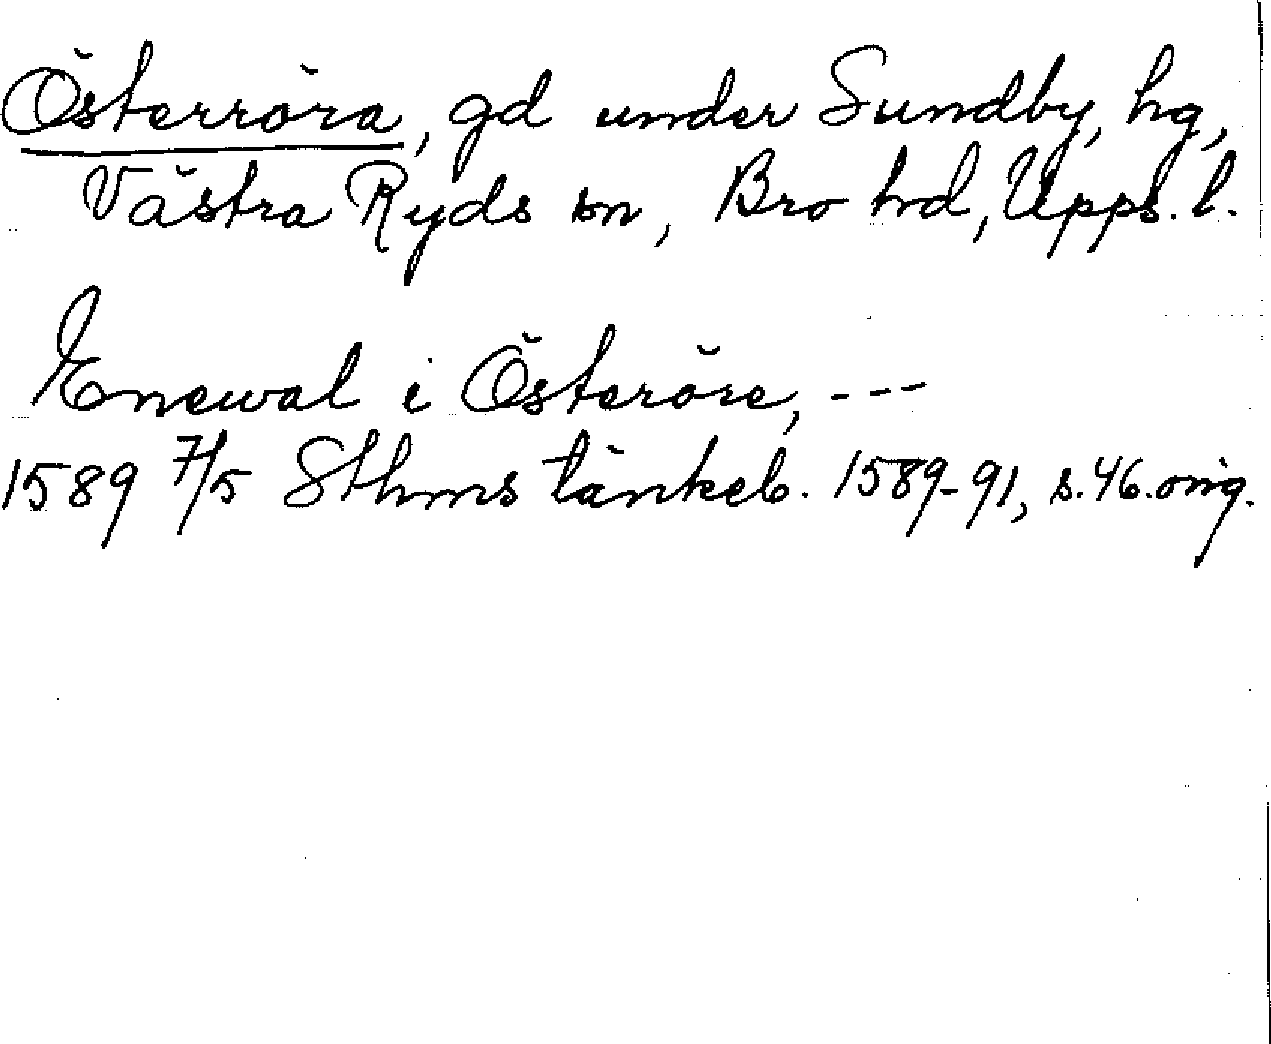 Österröra, gd under Sundby, hg,
Västra Ryds sn, Bro hd, Upps. l.
Enewal i Österöre, ---
1589 7/5 Sthms tänkeb. 1589-91, s. 46. orig.